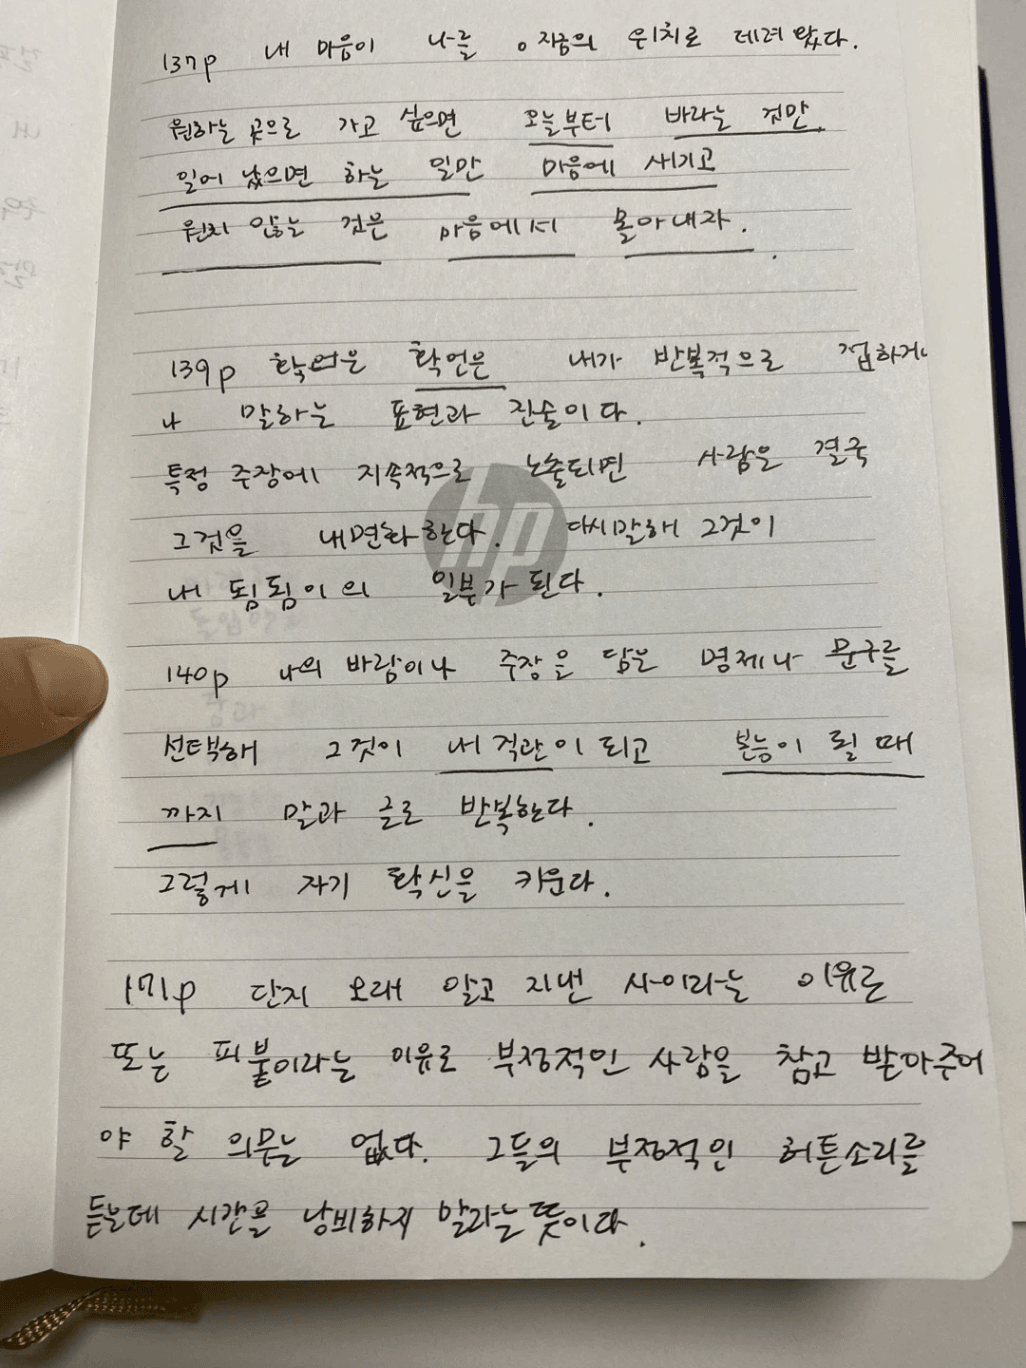 137p 내 마음이 나를 지금의 위치로 데려 왔다.
원하는 곳으로 가고 싶으면 오늘부터 바라는 것만
일어 났으면 하는 일만 마음에 새기고
원치 않는 것은 마음에서 몰아내자.
139p 확언은 확언은 내가 반복적으로 접하거
나 말하는 표현과 진술이다.
특정 주장에 지속적으로 노출되면 사람은 결국
그것을 내면화한다. 다시말해 그것이
내 됨됨이의 일부가 된다.
140p 나의 바람이나 주장을 담은 명제나 문구를
선택해 그것이 내 직관이 되고 본능이 될 때
까지 말과 글로 반복한다.
그렇게 자기 확신을 키운다.
171p 단지 오래 알고 지낸 사이라는 이유로
또는 피붙이라는 이유로 부정적인 사람을 참고 받아주어
야 할 의무는 없다. 그들의 부정적인 허튼소리를
듣는데 시간을 낭비하지 말라는 뜻이다.
hp